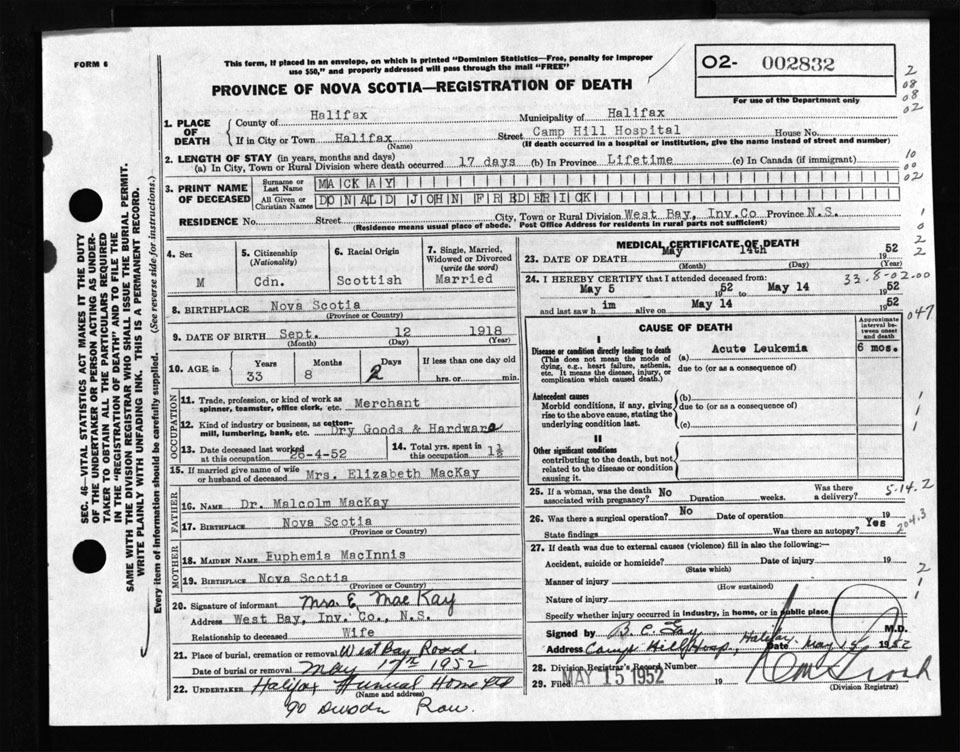 FORM 6
This form, if placed in an envelope, on which is printed "Dominion Statistics—Free, penalty for improper
use $50," and properly addressed will pass through the mail "FREE"
PROVINCE OF NOVA SCOTIA—REGISTRATION OF DEATH
O2- 002832
For use of the Department only
2
08
08
02
1. PLACE OF DEATH
County of Halifax Municipality of Halifax
If in City or Town Halifax (Name) Street Camp Hill Hospital House No.
(If death occurred in a hospital or institution, give the name instead of street and number)
2. LENGTH OF STAY (in years, months and days)
(a) In City, Town or Rural Division where death occurred 17 days (b) In Province Lifetime (c) In Canada (if immigrant)
10
00
02
3. PRINT NAME OF DECEASED
Surname or Last Name MACKAY
All Given or Christian Names DONALD JOHN FREDERICK
RESIDENCE No. Street City, Town or Rural Division West Bay, Inv.Co Province N.S.
(Residence means usual place of abode. Post Office Address for residents in rural parts not sufficient)
4. Sex M
5. Citizenship (Nationality) Cdn.
6. Racial Origin Scottish
7. Single, Married, Widowed or Divorced (write the word) Married
8. BIRTHPLACE Nova Scotia
(Province or Country)
9. DATE OF BIRTH Sept. 12 1918
(Month) (Day) (Year)
10. AGE in Years 33 Months 8 Days 2 If less than one day old hrs. or min.
OCCUPATION
11. Trade, profession, or kind of work as spinner, teamster, office clerk, etc. Merchant
12. Kind of industry or business, as cotton-mill, lumbering, bank, etc. Dry Goods & Hardware
13. Date deceased last worked at this occupation 26-4-52
14. Total yrs. spent in this occupation 1½
15. If married give name of wife or husband of deceased Mrs. Elizabeth MacKay
FATHER
16. NAME Dr. Malcolm MacKay
17. BIRTHPLACE Nova Scotia
(Province or Country)
MOTHER
18. MAIDEN NAME Euphemia MacInnis
19. BIRTHPLACE Nova Scotia
(Province or Country)
20. Signature of informant Mrs. E. MacKay
Address West Bay, Inv. Co., N.S.
Relationship to deceased Wife
21. Place of burial, cremation or removal West Bay Road
Date of burial or removal May 17th 1952
22. UNDERTAKER Halifax Funeral Home Ltd
(Name and address)
90 Row.
MEDICAL CERTIFICATE OF DEATH
23. DATE OF DEATH May 14th 1952
(Month) (Day) (Year)
24. I HEREBY CERTIFY that I attended deceased from:
33.8-02.00
May 5 1952 to May 14 1952
and last saw h im alive on May 14 1952
047
CAUSE OF DEATH
Approximate interval between onset and death
I
Disease or condition directly leading to death
(This does not mean the mode of dying, e.g., heart failure, asthenia, etc. It means the disease, injury, or complication which caused death.)
(a) Acute Leukemia 6 mos.
due to (or as a consequence of)
Antecedent causes
Morbid conditions, if any, giving rise to the above cause, stating the underlying condition last.
(b)
due to (or as a consequence of)
(c)
II
Other significant conditions
contributing to the death, but not related to the disease or condition causing it.
25. If a woman, was the death associated with pregnancy? No Duration weeks. Was there a delivery?
5-14.2
26. Was there a surgical operation? No Date of operation 19
State findings Was there an autopsy? Yes
204.3
27. If death was due to external causes (violence) fill in also the following:—
Accident, suicide or homicide? Date of injury 19
(State which)
Manner of injury
(How sustained)
Nature of injury
Specify whether injury occurred in industry, in home, or in public place
Signed by M.D.
Address Camp Hill Hosp, Halifax. Date May 15 1952
28. Division Registrar's Record Number
29. Filed MAY 15 1952 19
(Division Registrar)
SEC. 46—VITAL STATISTICS ACT MAKES IT THE DUTY
OF THE UNDERTAKER OR PERSON ACTING AS UNDER-
TAKER TO OBTAIN ALL THE PARTICULARS REQUIRED
IN THE "REGISTRATION OF DEATH" AND TO FILE THE
SAME WITH THE DIVISION REGISTRAR WHO SHALL ISSUE THE BURIAL PERMIT.
WRITE PLAINLY WITH UNFADING INK. THIS IS A PERMANENT RECORD.
Every item of information should be carefully supplied. (See reverse side for instructions.)